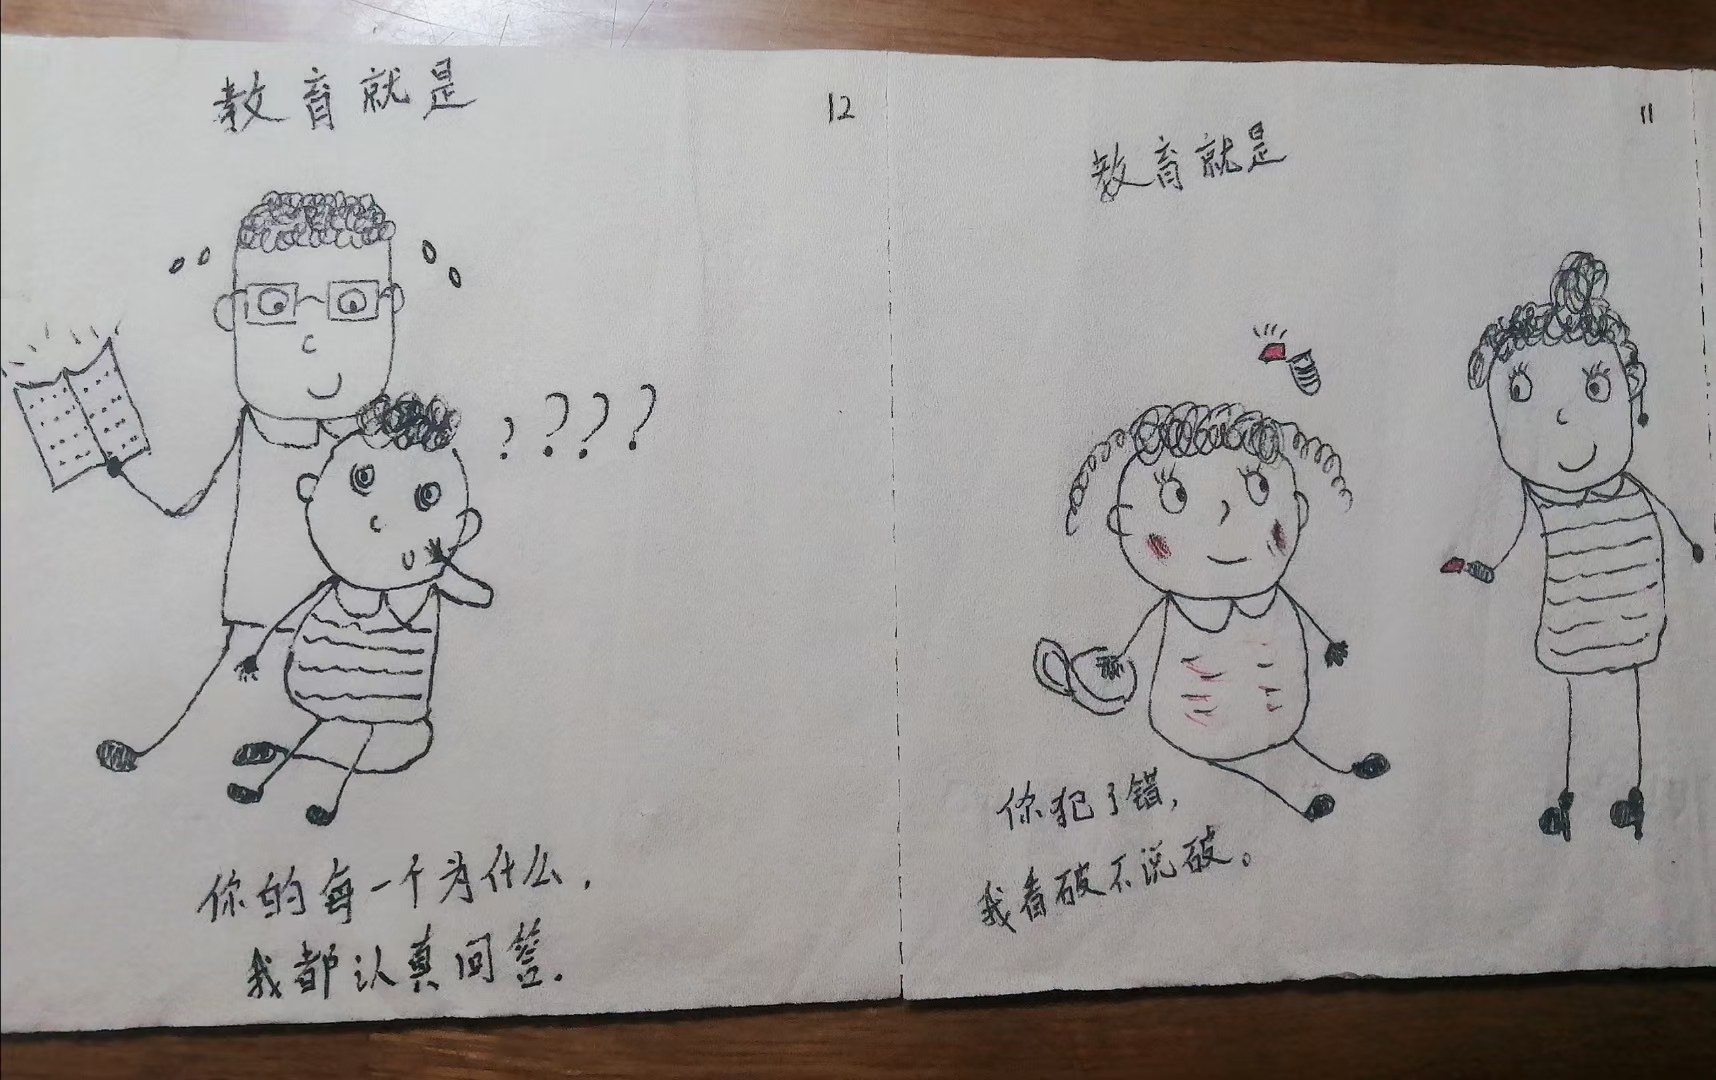 教育就是
12
????
你的每一个为什么，
我都认真回答.
教育就是
11
你犯了错，
我看破不说破。